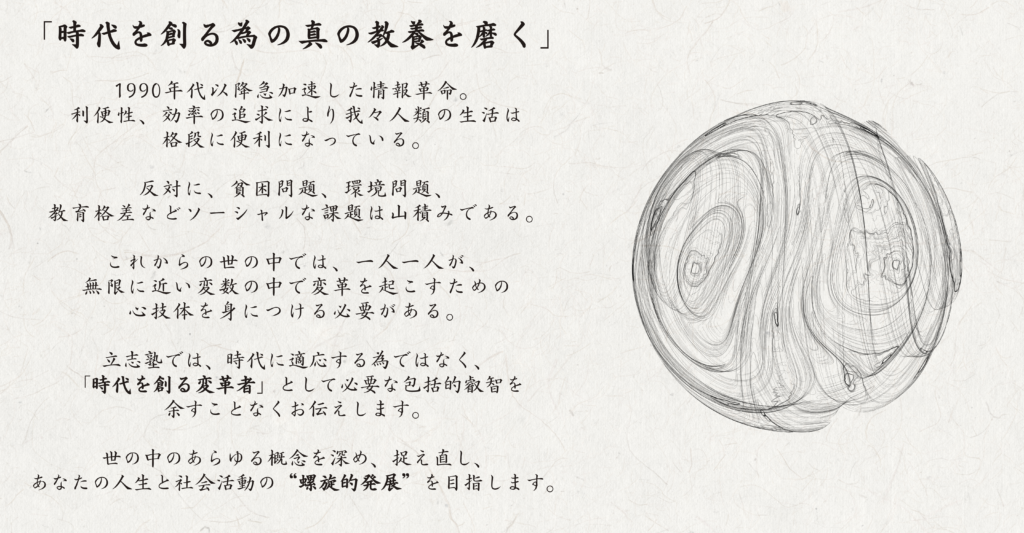 「時代を創る為の真の教養を磨く」
1990年代以降急加速した情報革命。
利便性、効率の追求により我々人類の生活は
格段に便利になっている。
反対に、貧困問題、環境問題、
教育格差などソーシャルな課題は山積みである。
これからの世の中では、一人一人が、
無限に近い変数の中で変革を起こすための
心技体を身につける必要がある。
立志塾では、時代に適応する為ではなく、
「時代を創る変革者」として必要な包括的叡智を
余すことなくお伝えします。
世の中のあらゆる概念を深め、捉え直し、
あなたの人生と社会活動の“螺旋的発展”を目指します。